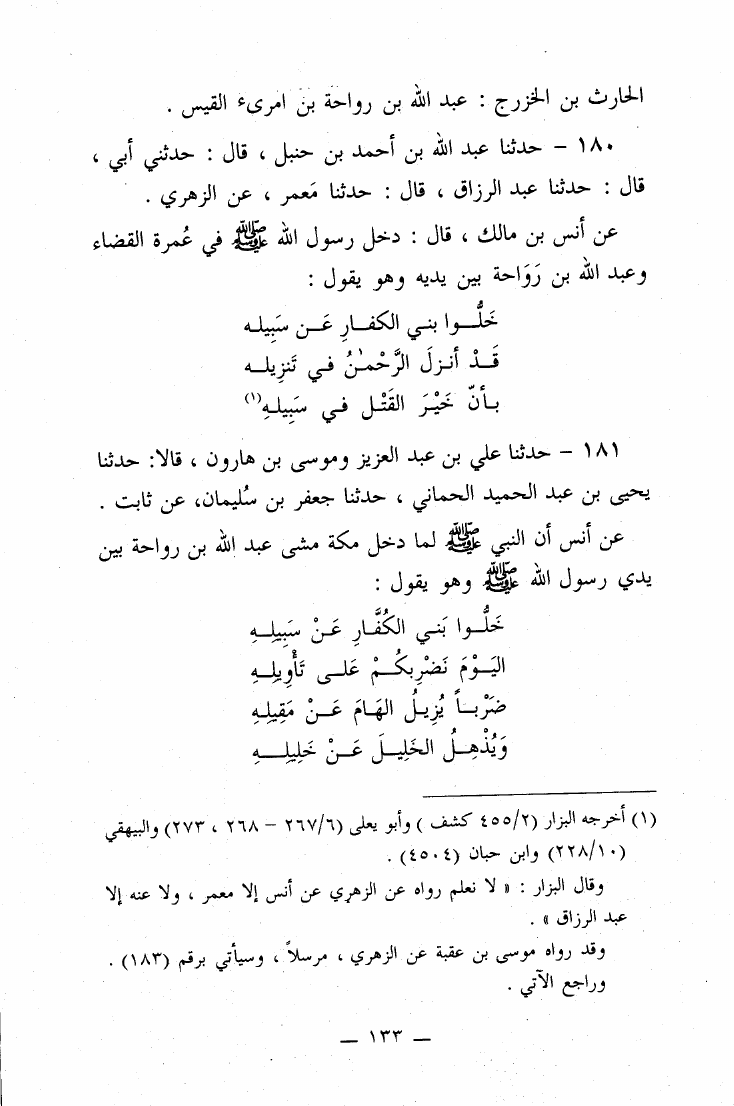 الحارث بن الخزرج : عبد الله بن رواحة بن امرىء القيس .
١٨٠ – حدثنا عبد الله بن أحمد بن حنبل ، قال : حدثني أبي ،
قال : حدثنا عبد الرزاق ، قال : حدثنا مَعمر ، عن الزهري .
عن أنس بن مالك ، قال : دخل رسول الله ﷺ في عُمرة القضاء
وعبد الله بن رَوَاحة بين يديه وهو يقول :
خَلُّـوا بنـي الكفـارِ عَـن سَبِيلـه
قَـدْ أنـزلَ الرَّحْمـٰنُ فـي تَنزِيلـه
بـأنّ خَيْـرَ القَتْـل فـي سَبِيلـهِ(١)
١٨١ – حدثنا علي بن عبد العزيز وموسى بن هارون ، قالا: حدثنا
يحيى بن عبد الحميد الحماني ، حدثنا جعفر بن سُليمان، عن ثابت .
عن أنس أن النبي ﷺ لما دخل مكة مشى عبد الله بن رواحة بين
يدي رسول الله ﷺ وهو يقول :
خَلُّـوا بَنـي الكُفَّـارِ عَـنْ سَبِيلِـهِ
اليَـوْمَ نَضْرِبكُـمْ عَلـى تَأْوِيلِـهِ
ضَرْبـاً يُزِيـلُ الهَـامَ عَـنْ مَقِيلِهِ
وَيُذْهِـلُ الخَلِيـلَ عَـنْ خَلِيلِـــهِ
(١) أخرجه البزار (٤٥٥/٢ كشف ) وأبو يعلى (٢٦٧/٦ – ٢٦٨ ، ٢٧٣) والبيهقي
(٢٢٨/١٠) وابن حبان (٤٥٠٤) .
وقال البزار : « لا نعلم رواه عن الزهري عن أنس إلا معمر ، ولا عنه إلا
عبد الرزاق » .
وقد رواه موسى بن عقبة عن الزهري ، مرسلاً ، وسيأتي برقم (١٨٣) .
وراجع الآتي .
– ١٣٣ –